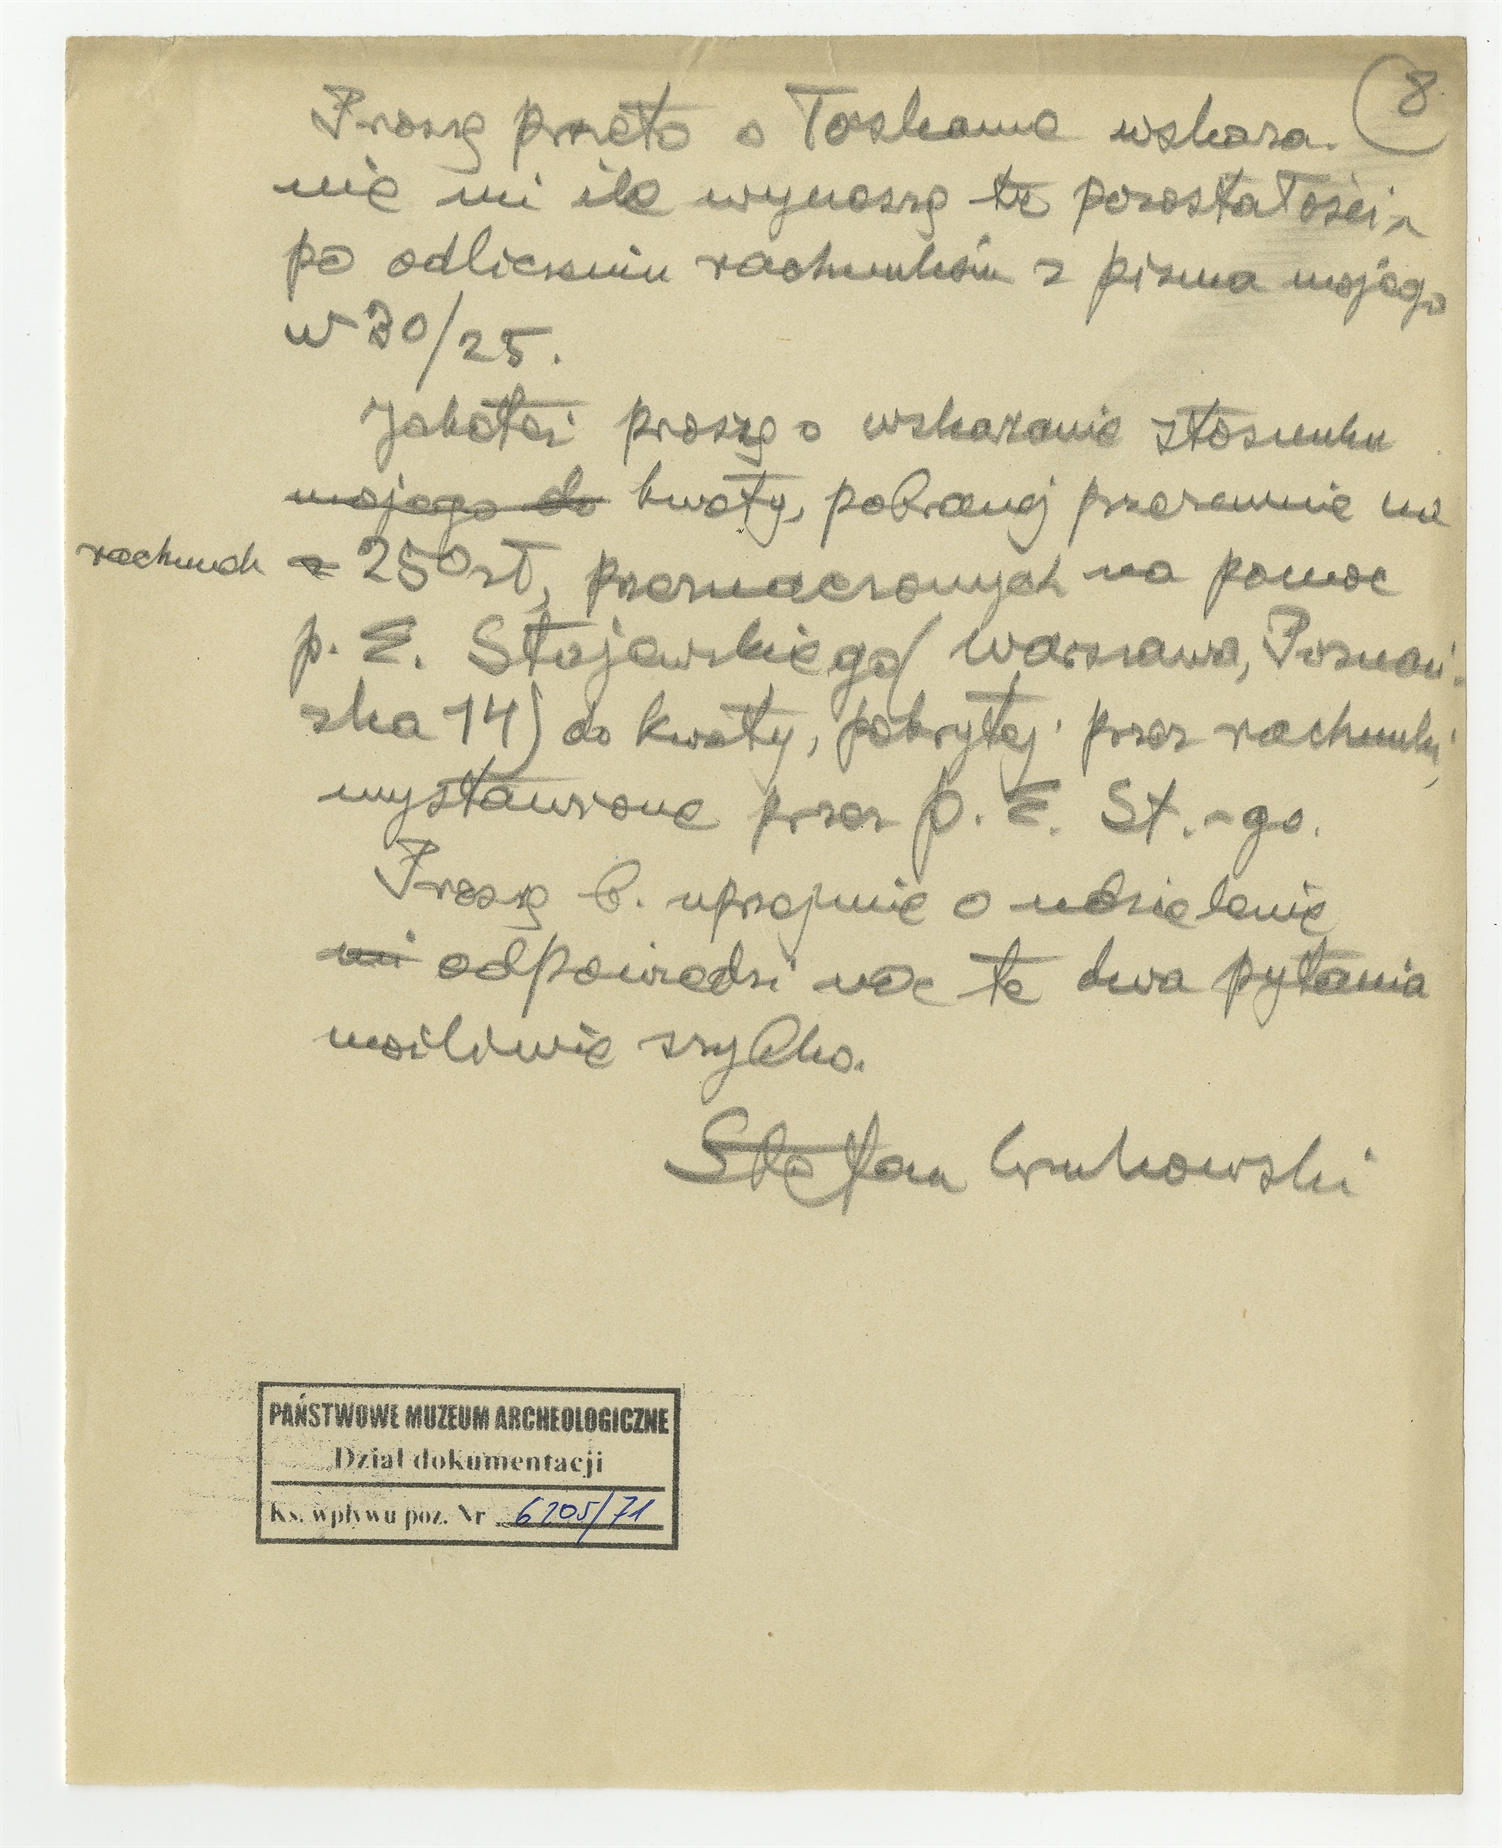 8
Proszę przeto o łaskawe wskaza-
nie mi ile wynoszę te pozostałości
po odliczeniu rachunków z pisma mojego
w 30/25.
Jakoteż proszę o wskazanie stosunku
mojego do kwoty, pobranej przezemnie na
rachunek 250 zł, przeznaczonych na pomoc
p. E. Stojewskiego (Warszawa, Poznań-
ska 14) do kwoty, pokrytej przez rachunki,
wystawione przez p. E. St.-go.
Proszę b. uprzejmie o udzielenie
mi odpowiedzi na te dwa pytania
możliwie szybko.
Stefan Krukowski
PAŃSTWOWE MUZEUM ARCHEOLOGICZNE
Dział dokumentacji
Ks. wpływu poz. Nr 6205/71